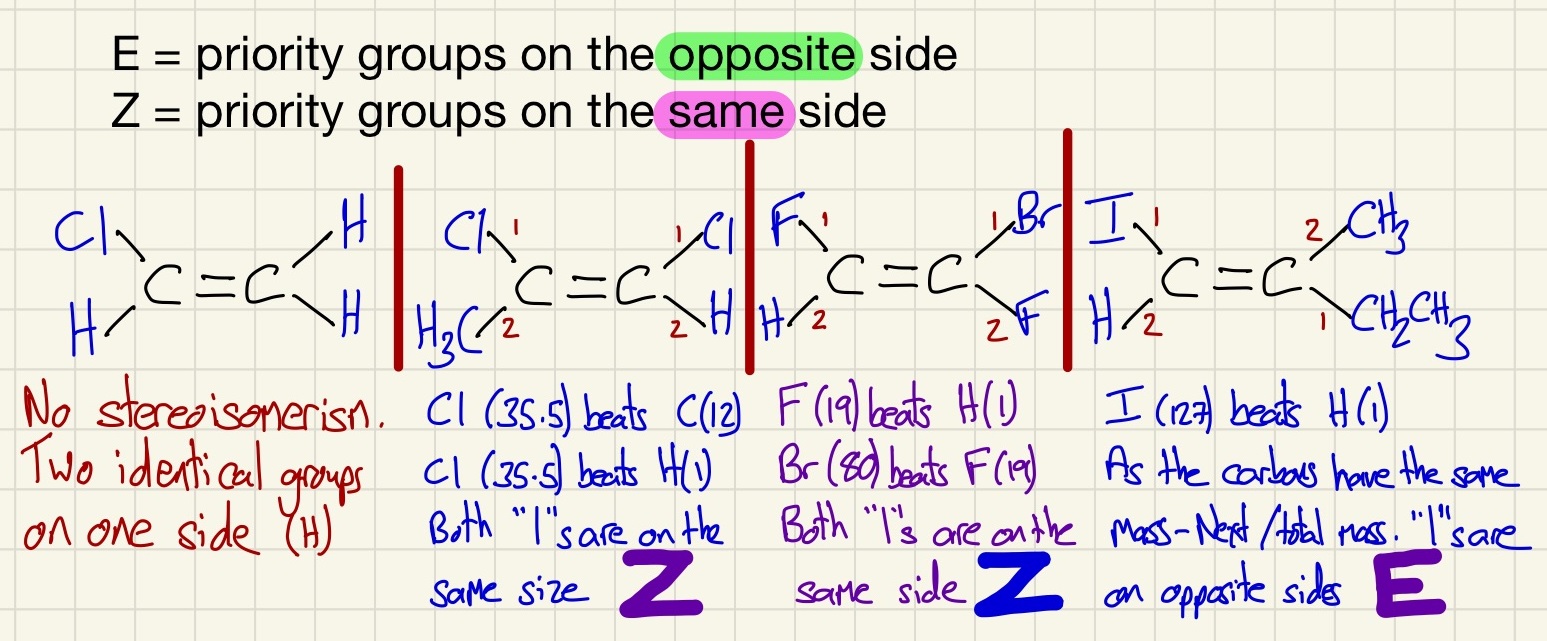 E = priority groups on the opposite side
Z = priority groups on the same side
Cl H
C=C
H H
No stereoisomerism.
Two identical groups
on one side (H)
Cl 1 1 Cl
C=C
H3C 2 2 H
Cl (35.5) beats C(12)
Cl (35.5) beats H(1)
Both "1"s are on the
same size Z
F 1 1 Br
C=C
H 2 2 F
F (19) beats H(1)
Br (80) beats F(19)
Both "1"s are on the
same side Z
I 1 2 CH3
C=C
H 2 1 CH2CH3
I (127) beats H(1)
As the carbons have the same
Mass-Next/total mass. "1"s are
on opposite sides E